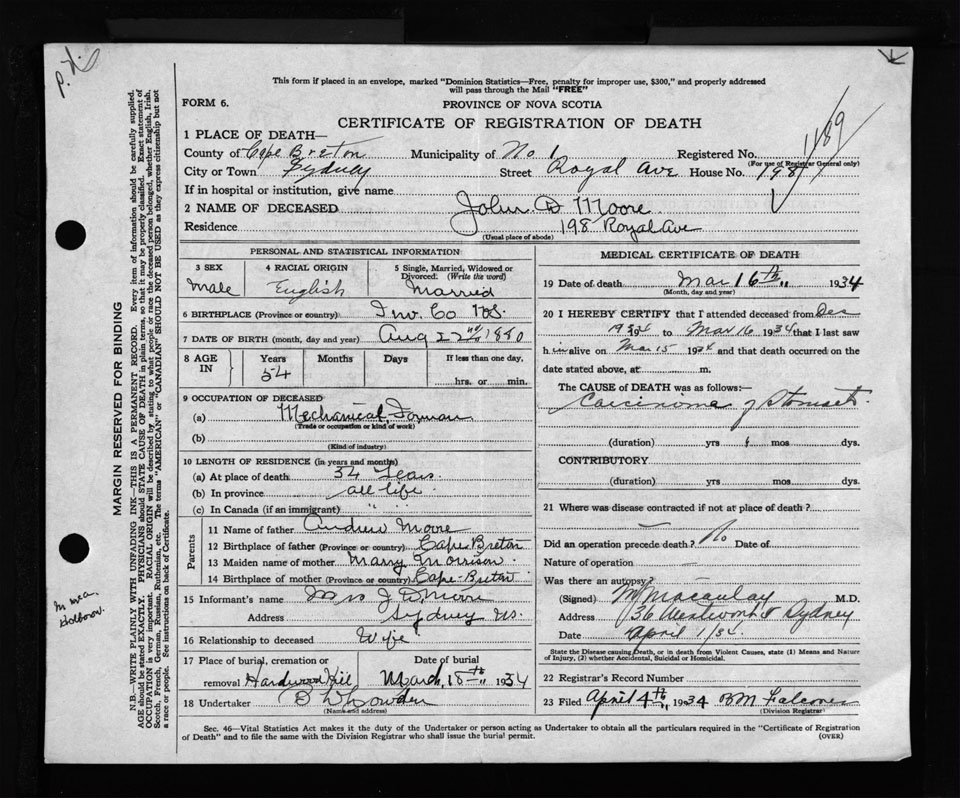 This form if placed in an envelope, marked "Dominion Statistics—Free, penalty for improper use, $300," and properly addressed
will pass through the Mail "FREE"
FORM 6.
PROVINCE OF NOVA SCOTIA
CERTIFICATE OF REGISTRATION OF DEATH
1189
1 PLACE OF DEATH—
County of Cape Breton Municipality of No 1 Registered No.
(For use of Registrar General only)
City or Town Sydney Street Royal Ave House No. 198
If in hospital or institution, give name
2 NAME OF DECEASED John D Moore
Residence 198 Royal Ave
(Usual place of abode)
PERSONAL AND STATISTICAL INFORMATION
3 SEX 4 RACIAL ORIGIN 5 Single, Married, Widowed or Divorced. (Write the word)
Male English Married
6 BIRTHPLACE (Province or country) Inv. Co N.S.
7 DATE OF BIRTH (month, day and year) Aug 22nd 1880
8 AGE IN Years Months Days If less than one day,
54 hrs. or min.
9 OCCUPATION OF DECEASED
(a) Mechanical Forman
(Trade or occupation or kind of work)
(b)
(Kind of industry)
10 LENGTH OF RESIDENCE (in years and months)
(a) At place of death 34 Years
(b) In province all life
(c) In Canada (if an immigrant) " "
Parents
11 Name of father Andrew Moore
12 Birthplace of father (Province or country) Cape Breton
13 Maiden name of mother Marry Morrison
14 Birthplace of mother (Province or country) Cape-Breton
15 Informant's name Mrs J D Moore
Address Sydney NS.
16 Relationship to deceased Wife
17 Place of burial, cremation or Date of burial
removal Hardwood Hill March 18th 1934
18 Undertaker
(Name and address)
MEDICAL CERTIFICATE OF DEATH
19 Date of death Mar 16th 1934
(Month, day and year)
20 I HEREBY CERTIFY that I attended deceased from Dec
to Mar 16 1934 that I last saw
h im alive on Mar 15 1934 and that death occurred on the
date stated above, at m.
The CAUSE of DEATH was as follows:—
Carcinoma of Stomach
(duration) yrs mos dys.
CONTRIBUTORY
(duration) yrs mos dys.
21 Where was disease contracted if not at place of death?
Did an operation precede death? No Date of
Nature of operation —
Was there an autopsy?
(Signed) Macaulay M.D.
Address 36 Sydney
Date April 1/34.
State the Disease causing Death, or in death from Violent Causes, state (1) Means and Nature
of Injury, (2) whether Accidental, Suicidal or Homicidal.
22 Registrar's Record Number
23 Filed April 4th 1934
(Division Registrar)
Sec. 46—Vital Statistics Act makes it the duty of the Undertaker or person acting as Undertaker to obtain all the particulars required in the "Certificate of Registration
of Death" and to file the same with the Division Registrar who shall issue the burial permit.
(OVER)
MARGIN RESERVED FOR BINDING
N.B.—WRITE PLAINLY WITH UNFADING INK—THIS IS A PERMANENT RECORD. Every item of information should be carefully supplied.
AGE should be stated EXACTLY. PHYSICIANS should STATE CAUSE OF DEATH in plain terms, so that it may be properly classified. Exact statement of
OCCUPATION is very important. RACIAL ORIGIN will be described by stating to what people or race the deceased person belonged, whether English, Irish,
Scotch, French, German, Russian, Ruthenian, etc. The terms "AMERICAN" or "CANADIAN" SHOULD NOT BE USED as they express citizenship but not
a race or people. See instructions on back of Certificate.